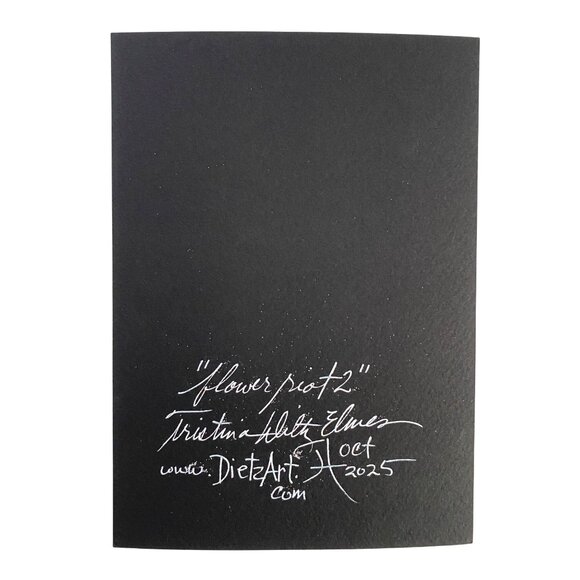 "flower riot 2"
Tristina Dietz Elmes
www.DietzArt. Oct
com 2025